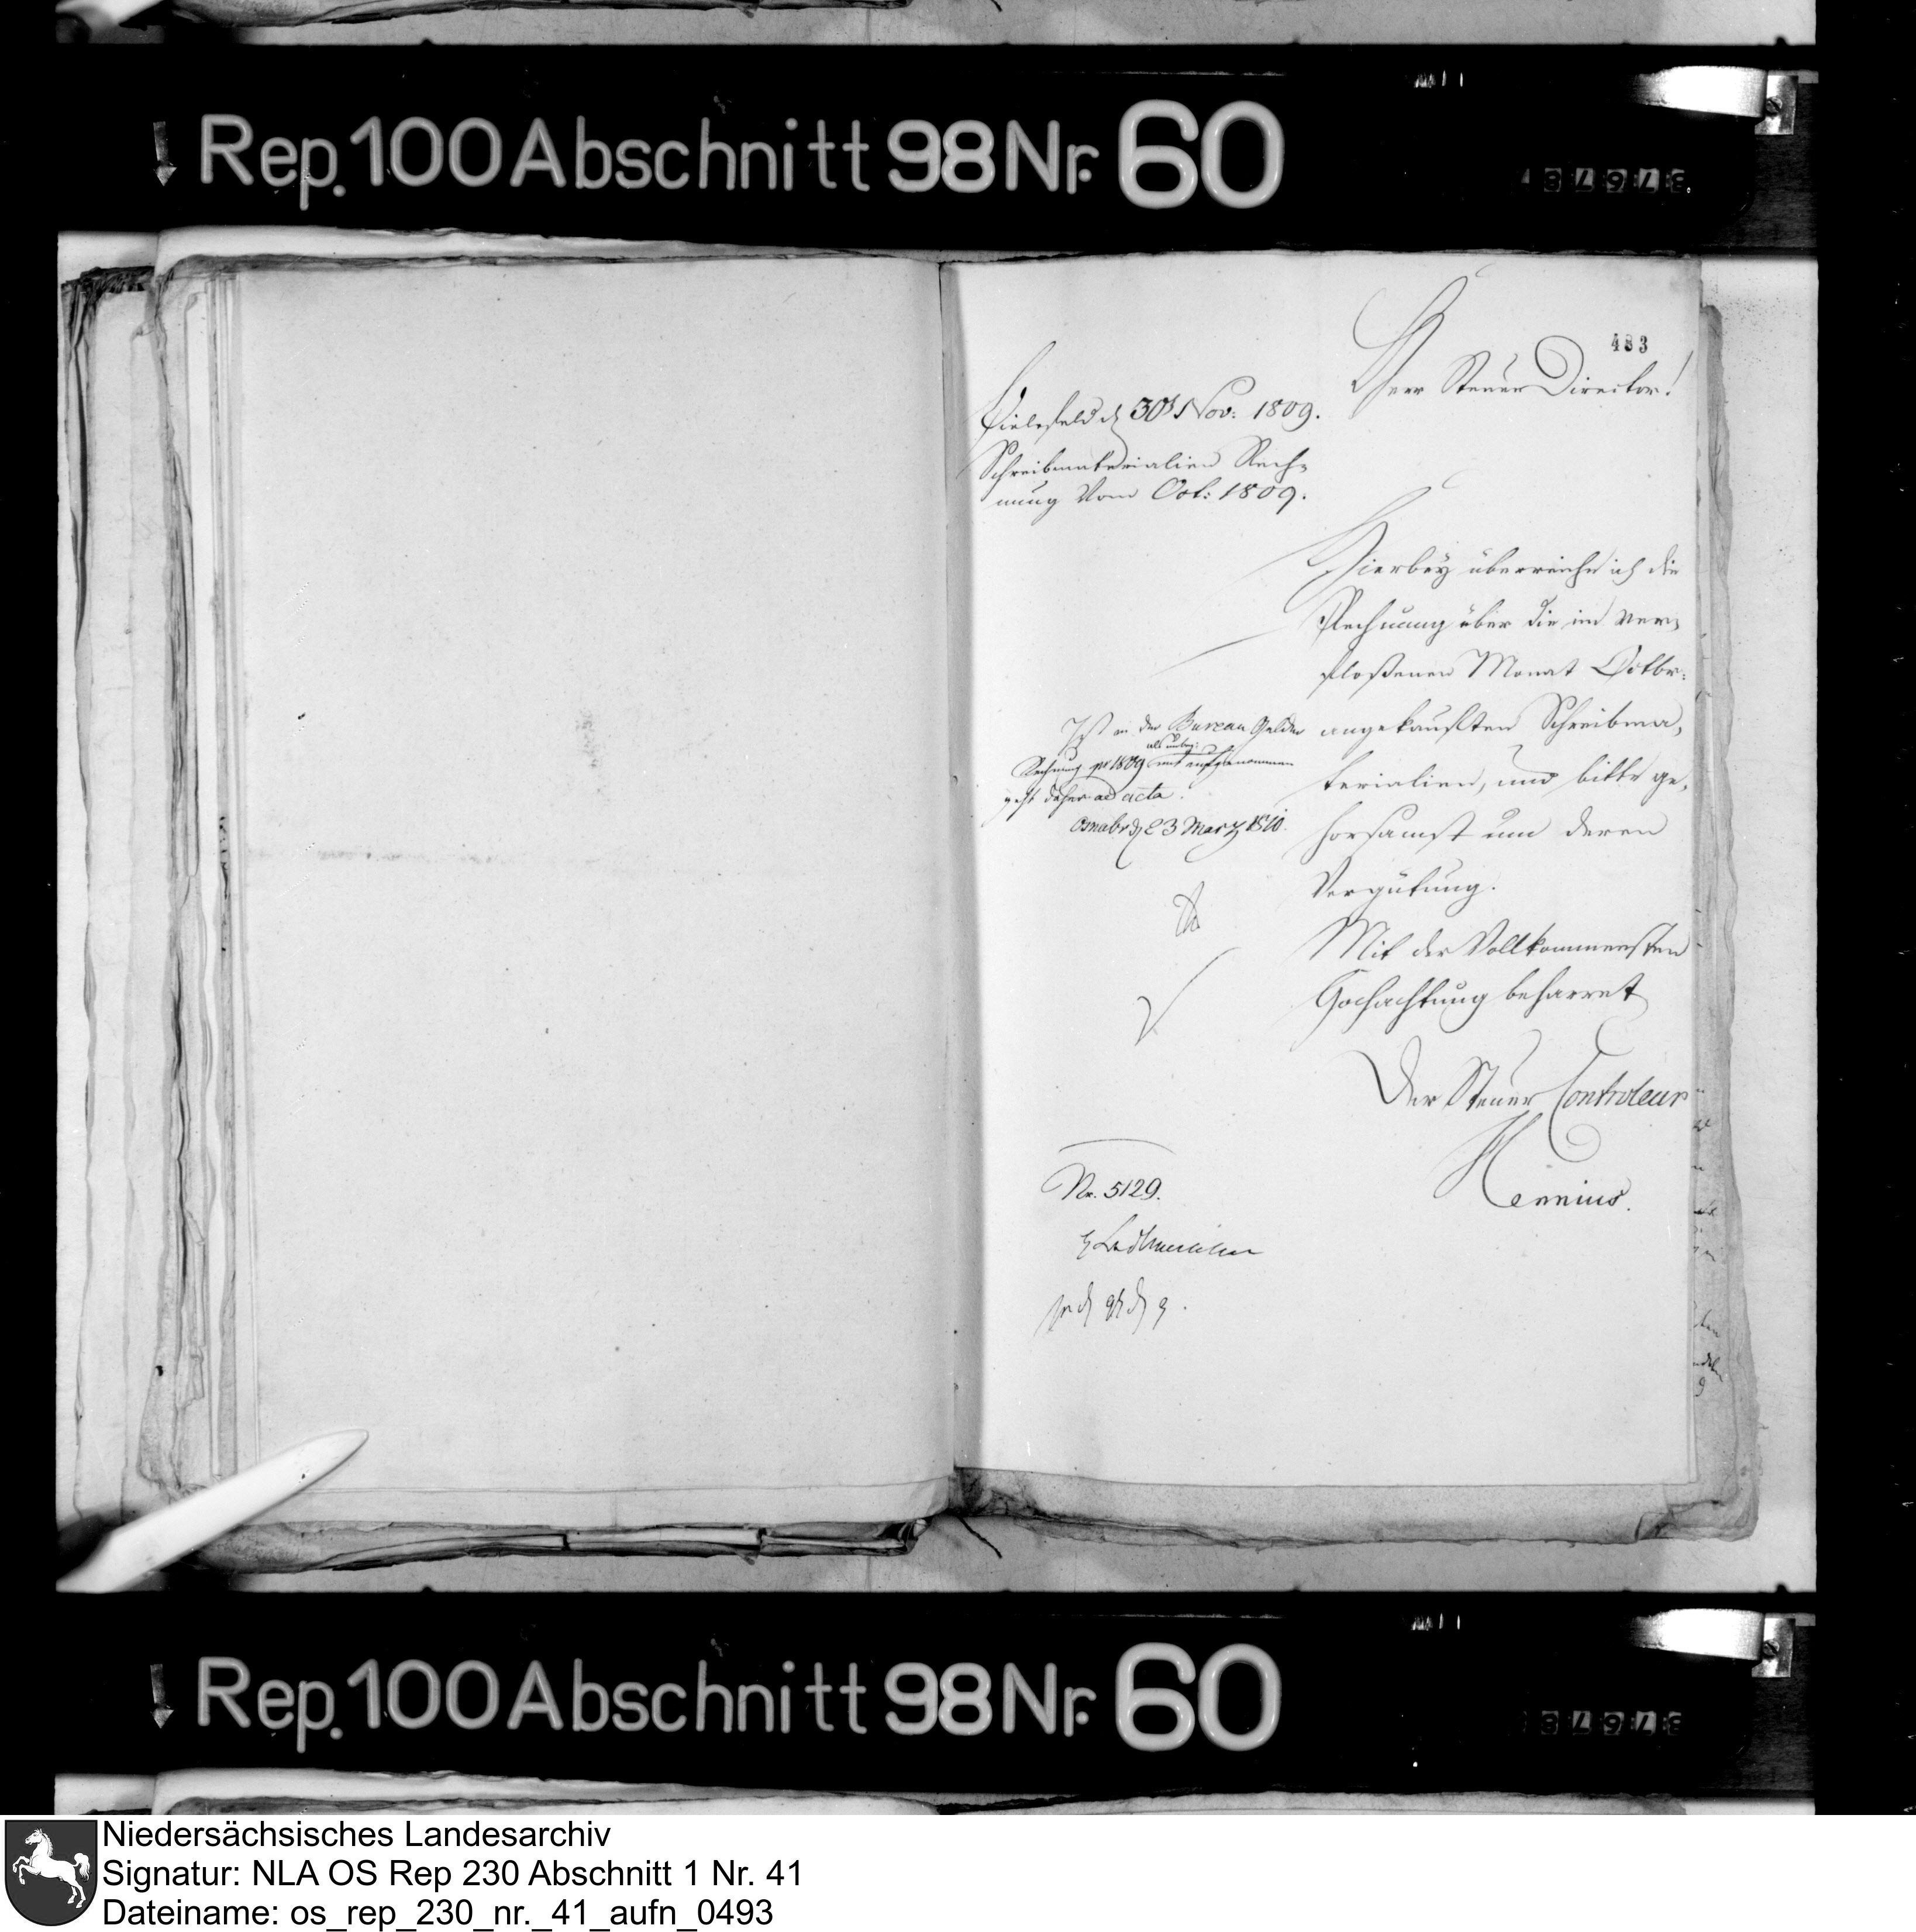 Rep. 100 Abschnitt 98 Nr. 60
37678
483
Herr Steuer Director!
Bielefeld d 30t Nov: 1809.
Schreibmaterialien Rech-
nung vom Oct: 1809.
Hierbey überreiche ich die
Rechnung über die im ver-
floßenen Monat Octbr:
angekauften Schreibma-
terialien, und bitte ge-
horsamst um deren
Vergütung.
Mit der Vollkommensten
Hochachtung beharret
Der Steuer Controleur
Hennius.
Ist in der Bureau Gelder
Rechnung pr 1809 mit aufgenommen
geht daher ad acta.
Osnabr d 23 Marz 1810.
Nr. 5129.
Rep. 100 Abschnitt 98 Nr. 60
37678
Niedersächsisches Landesarchiv
Signatur: NLA OS Rep 230 Abschnitt 1 Nr. 41
Dateiname: os_rep_230_nr._41_aufn_0493